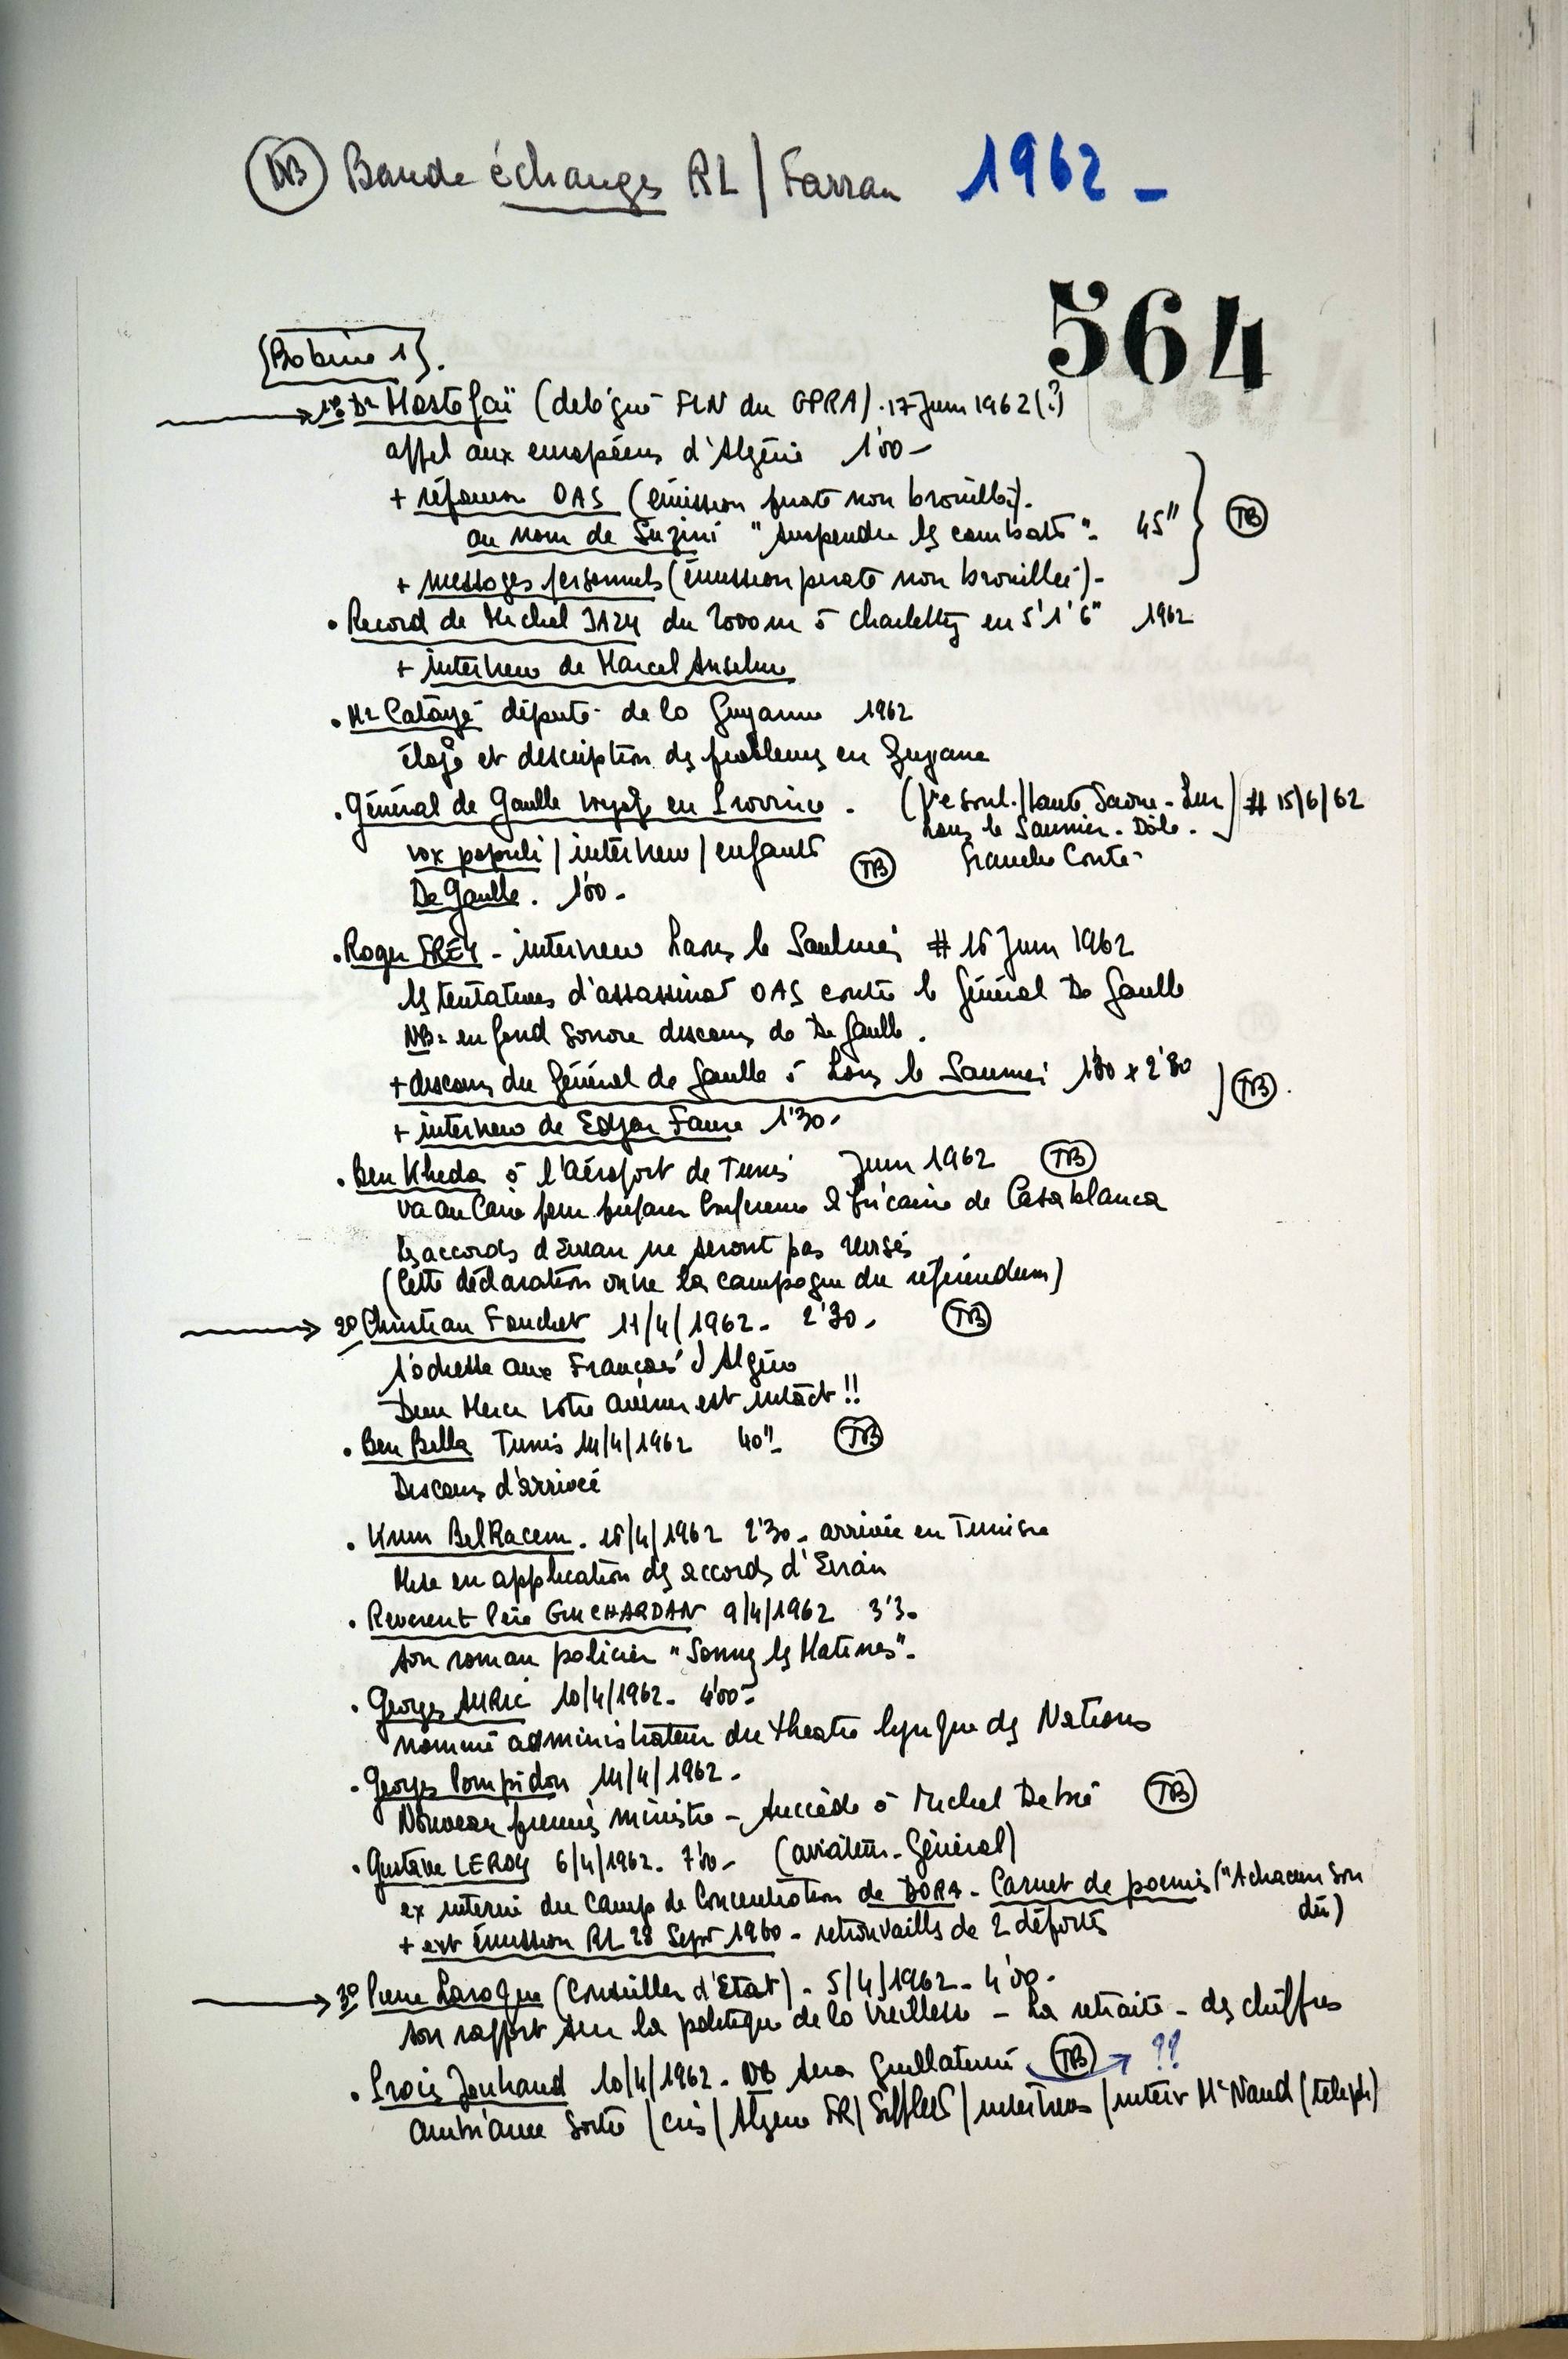 NB Bande échanges RL / Farran 1962 -
564
Bobine 1.
1° Dr Mostefaï (délégué FLN du GPRA). 17 Juin 1962 (?)
appel aux européens d'Algérie 1'00 -
+ réponse OAS (émission pirate non brouillée).
au nom de Suzini "suspendre les combats". 45" TB
+ messages personnels (émission pirate non brouillée) -
• Record de Michel JAZY du 2000 m à Charletty en 5'1'6" 1962
+ interview de Marcel Anselme
• Mr Catayé député de la Guyanne 1962
éloge et description des problèmes en Guyane
• Général de Gaulle voyage en Province - (Vesoul / Haute Saône - Lure) # 15/6/62
Lons le Saunier - Dôle.
vox populi / interview / enfants TB Franche Comté
De Gaulle. 1'00 -
• Roger FREY - interview Lons le Saulnier # 16 Juin 1962
les tentatives d'assassinat OAS contre le Général De Gaulle
NB: en fond sonore discours de De Gaulle.
+ discours du Général de Gaulle à Lons le Saunier 1'30 x 2'30 TB.
+ interview de Edgar Faure 1'30 -
• Ben Kheda à l'Aéroport de Tunis Juin 1962 TB
va au Caire pour préparer Conférence Africaine de Casablanca
les accords d'Evian ne seront pas revisés
(Cette déclaration ouvre la campagne du référendum)
2° Christian Fouchet 11/4/1962 - 2'30 - TB
s'adresse aux Français d'Algérie
Dieu Merci votre avenir est intact !!
• Ben Bella Tunis 14/4/1962 40" TB
Discours d'arrivée
• Krim BelKacem. 16/4/1962 2'30 - arrivée en Tunisie
Mise en application des accords d'Evian
• Reverent Père GUICHARDAN 9/4/1962 3'3.
son roman policier "Sonnez les Matines".
• Georges AURIC 10/4/1962 - 4'00 -
nommé administrateur du théatre lyrique des Nations
• Georges Pompidou 14/4/1962 -
Nouveau premier ministre - succède à Michel Debré TB
• Gustave LEROY 6/4/1962 - 7'00 - (aviateur - Général)
ex interné du Camp de Concentration de DORA - Carnet de poemes ("A chacun son dû)
+ ext émission RL 28 Sept 1960 - retrouvailles de 2 déportés
3° Pierre Laroque (Conseiller d'Etat) - 5/4/1962 - 4'00 -
son rapport sur la politique de la vieillesse - La retraite - des chiffres
• Procès Jouhaud 10/4/1962 - NB sera Guillotiné TB → ??
ambiance sortie / cris / Algérie FR / Sifflets / interviews / interv Me Naud (téléph)